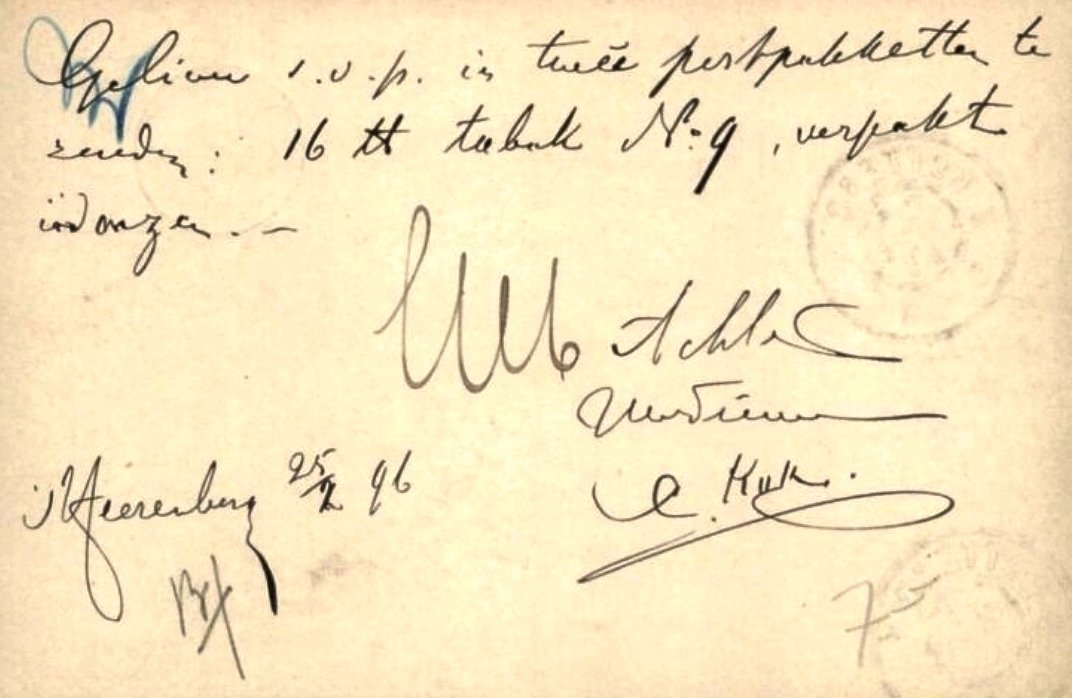 Gelieve s.v.p. in twee postpakketten te
zenden: 16 ℔ tabak No. 9, verpakt
in onzen.—
Achte
Uw Dienaar
C. Kuk.
'sHeerenberg 25/2 96
7